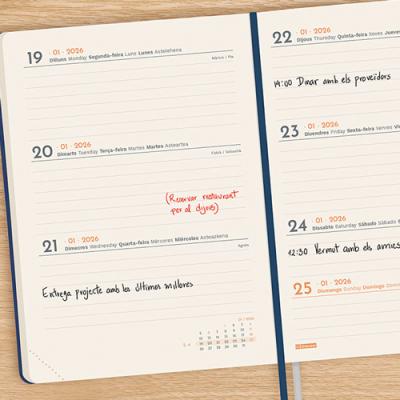 19 · 01 · 2026
Dilluns Monday Segunda-feira Luns Lunes Astelehena
20 · 01 · 2026
Dimarts Tuesday Terça-feira Martes Martes Asteartea
(Reservar restaurant
per al dijous)
21 · 01 · 2026
Dimecres Wednesday Quarta-feira Mércores Miércoles Asteazkena
Agnès
Entrega projecte amb les últimes millores
22 · 01 · 2026
Dijous Thursday Quinta-feira Xoves Jueves
14:00 Dinar amb els proveïdors
23 · 01 · 2026
Divendres Friday Sexta-feira Venres
24 · 01 · 2026
Dissabte Saturday Sábado Sábado
12:30 Vermut amb els
25 · 01 · 2026
Diumenge Sunday Domingo Domingo